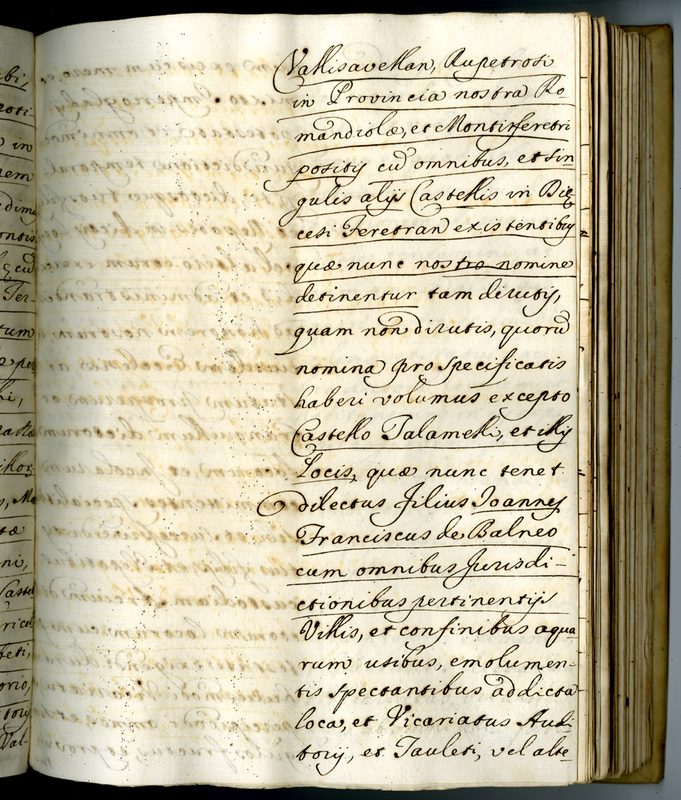 bi,
roti-
in
nem
dime
ontis
cũ
Ter-
tum
pet
hi,
aste
illoz
s, Me
tæ
ni,
Caste
ricu
feti,
orio,
tory
Val-
Vallisavellan, Rupetrosi
in Provincia nostra Ro-
mandiolæ, et Montisferetri
positis cũ omnibus, et sin
gulis alijs Castellis in Diœ
cesi Feretran existentibus
quæ nunc nostræ nomine
detinentur tam dirutis,
quam non dirutis, quorũ
nomina pro specificatis
haberi volumus excepto
Castello Talamelli, et illis
Locis, quæ nunc tenet
dilectus filius Joannes
Franciscus de Balneo
cum omnibus Jurisdi-
ctionibus pertinentijs
Villis, et confinibus aqua
rum usibus, emolumen-
tis spectantibus ad dicta
loca, et Vicariatus Audi
torij, et Tauleti, vel alte